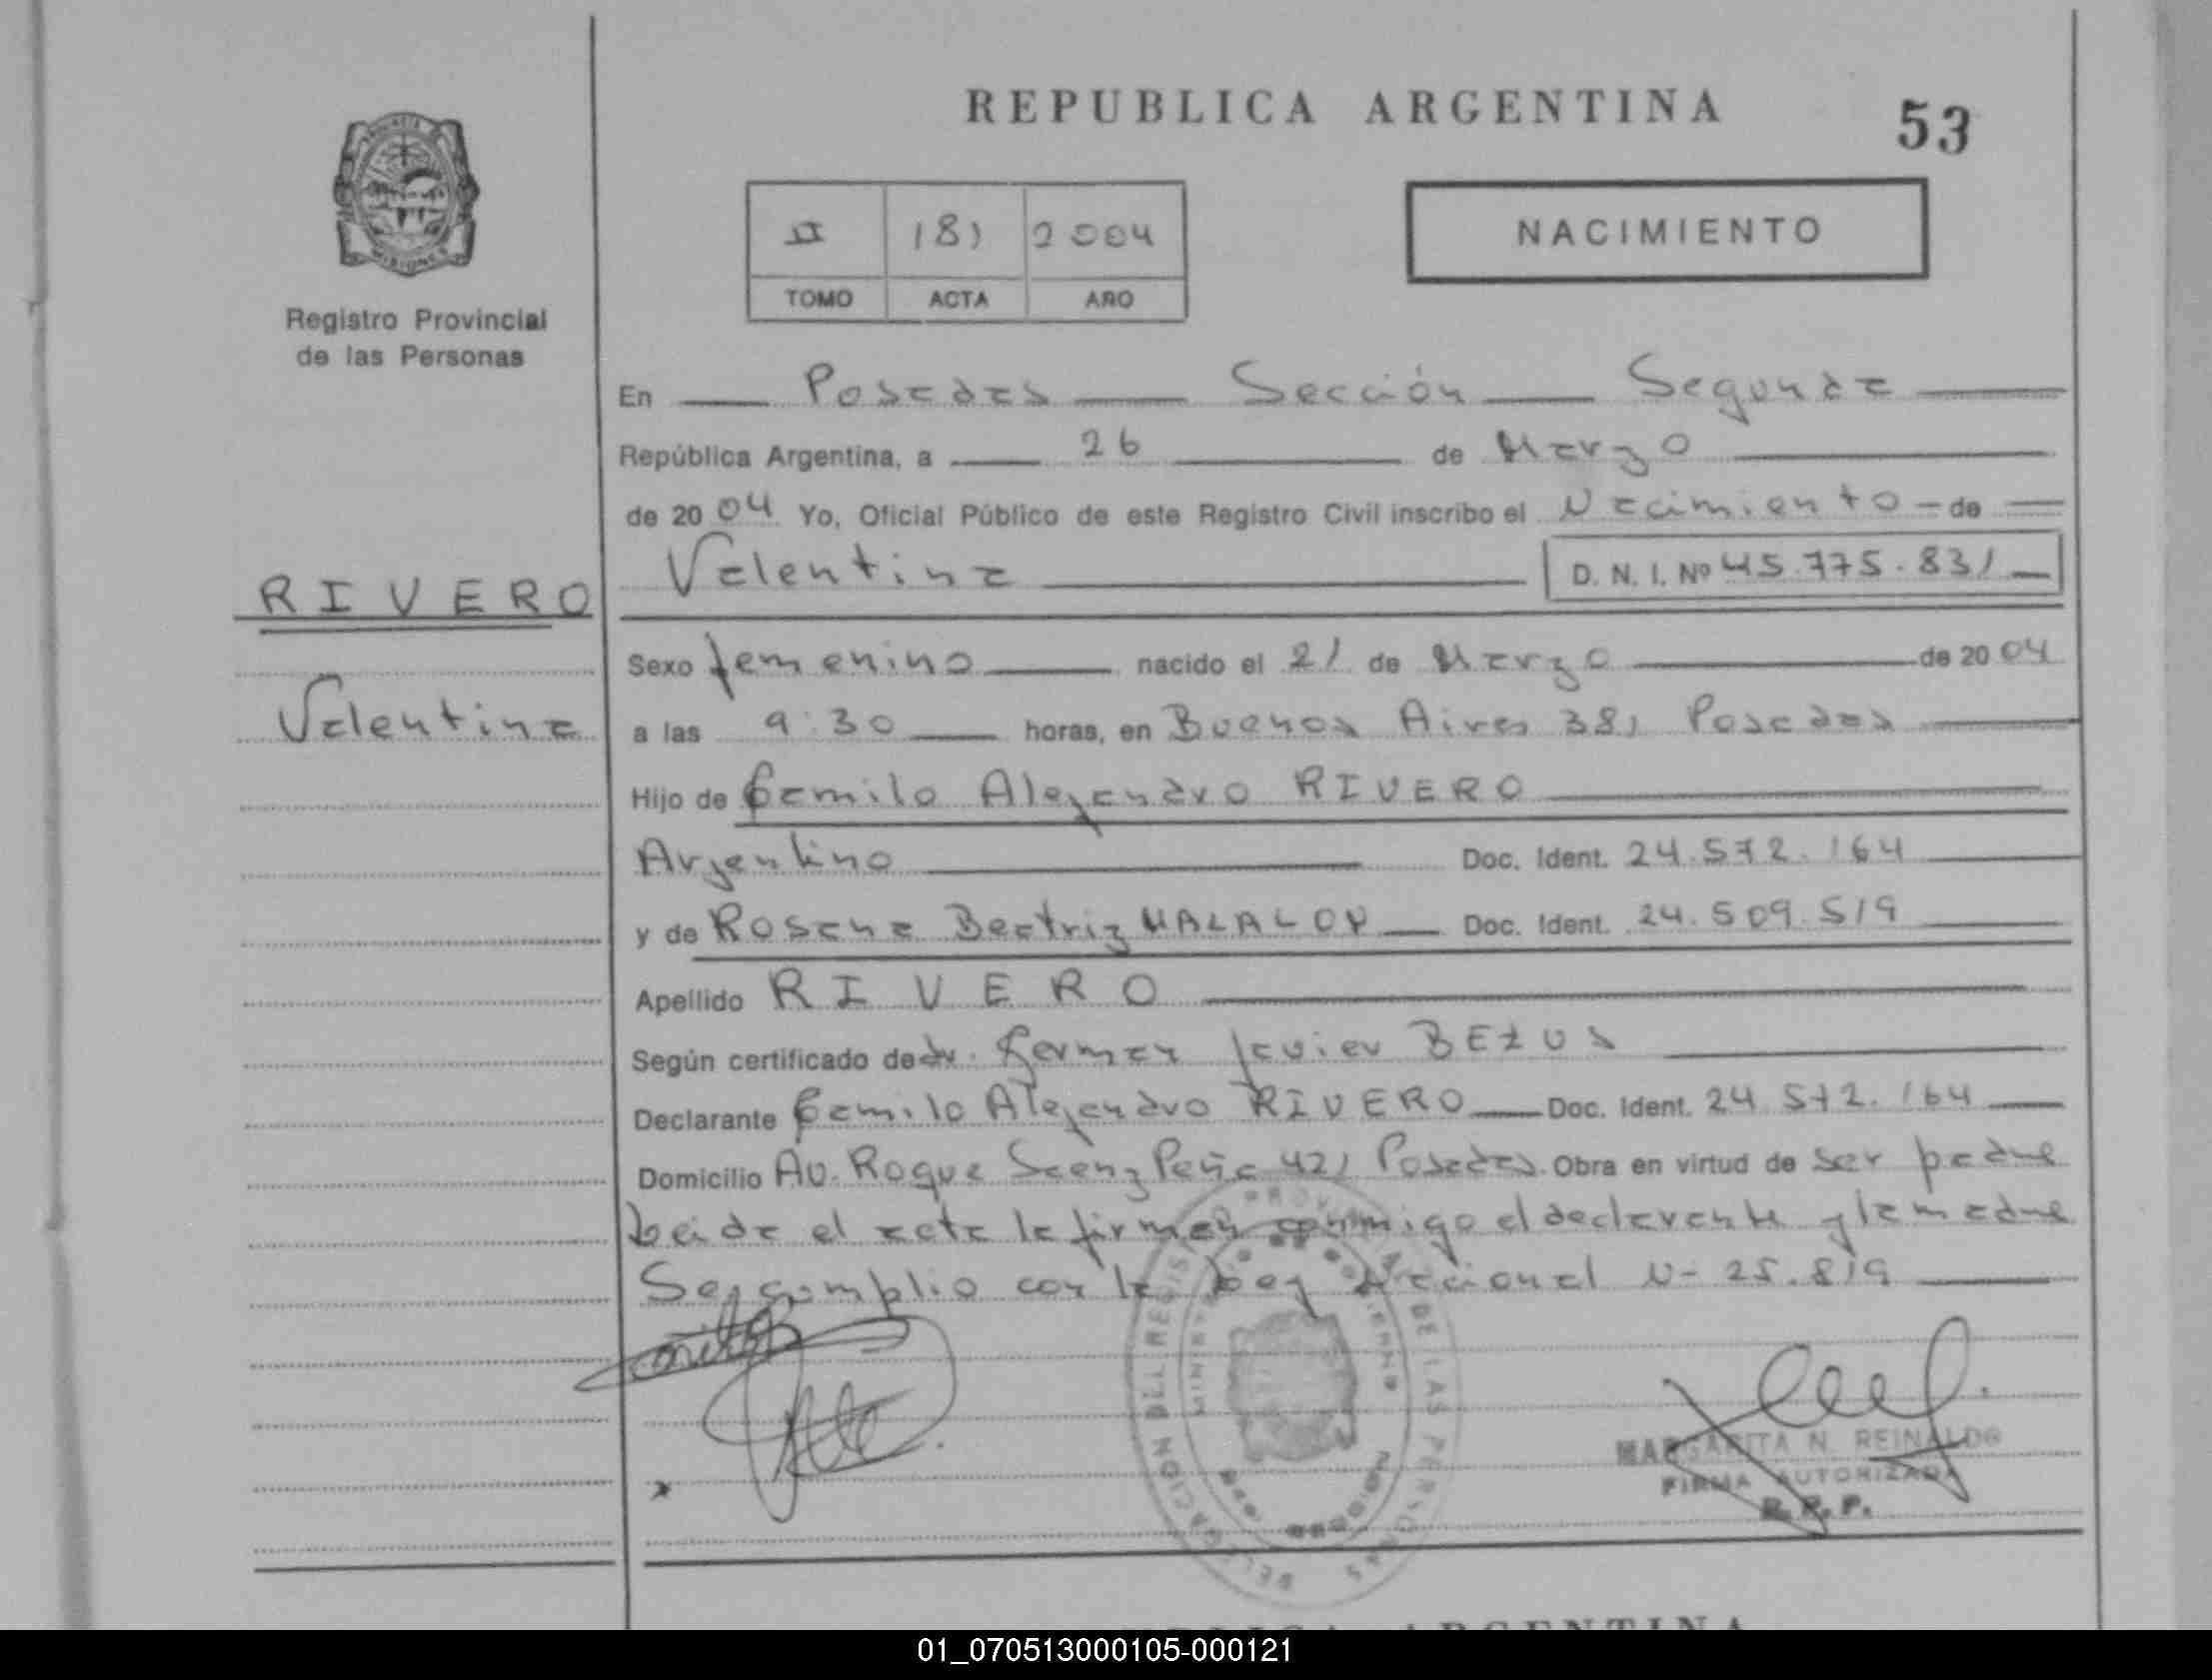 REPUBLICA ARGENTINA
53
II 181 2004
TOMO ACTA AÑO
NACIMIENTO
MISIONES
Registro Provincial
de las Personas
En Posadas Sección Segunda
República Argentina, a 26 de Marzo
de 2004 Yo, Oficial Público de este Registro Civil inscribo el Nacimiento de
Valentina D. N. I. Nº 45.775.831
RIVERO
Valentina
Sexo femenino nacido el 21 de Marzo de 2004
a las 9:30 horas, en Buenos Aires 381 Posadas
Hijo de Camilo Alejandro RIVERO
Argentino Doc. Ident. 24.572.164
y de Rosana Beatriz Doc. Ident. 24.509.519
Apellido RIVERO
Según certificado de dr. German Javier BEZUS
Declarante Camilo Alejandro RIVERO Doc. Ident. 24.572.164
Domicilio Av. Roque Saenz Peña 421 Posadas. Obra en virtud de ser padre
Leida el acta la firman conmigo el declarante y la madre
Se cumplio con la Ley Nacional N- 25.819
DELEGACION DEL REGISTRO PROVINCIAL DE LAS PERSONAS
MARGARITA N. REINALDO
FIRMA AUTORIZADA
R. P. P.
REPUBLICA ARGENTINA
01_070513000105-000121